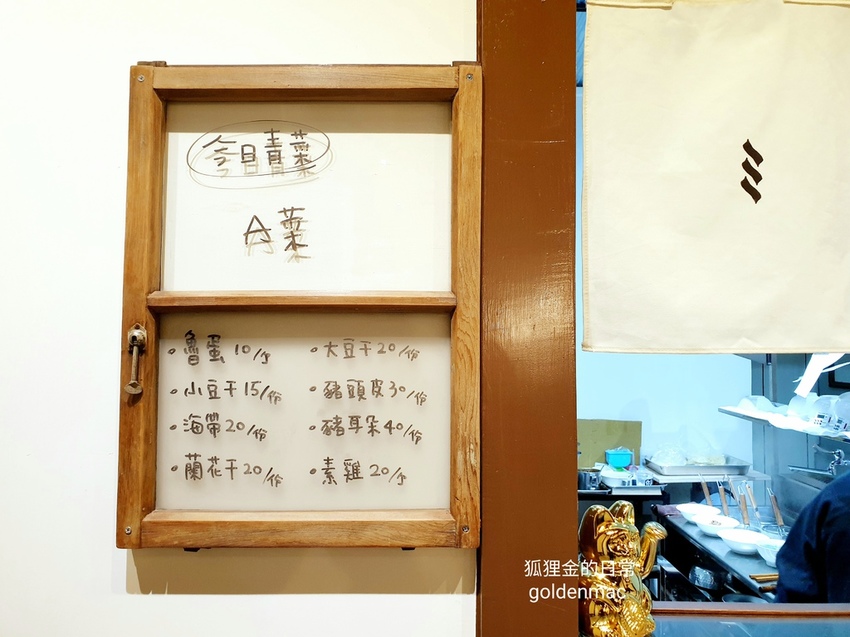 今日青菜
A菜
·魯蛋 10/個
·小豆干 15/份
·海帶 20/份
·蘭花干 20/份
·大豆干 20/份
·豬頭皮 30/份
·豬耳朵 40/份
·素雞 20/個
狐狸金的日常
goldenmac